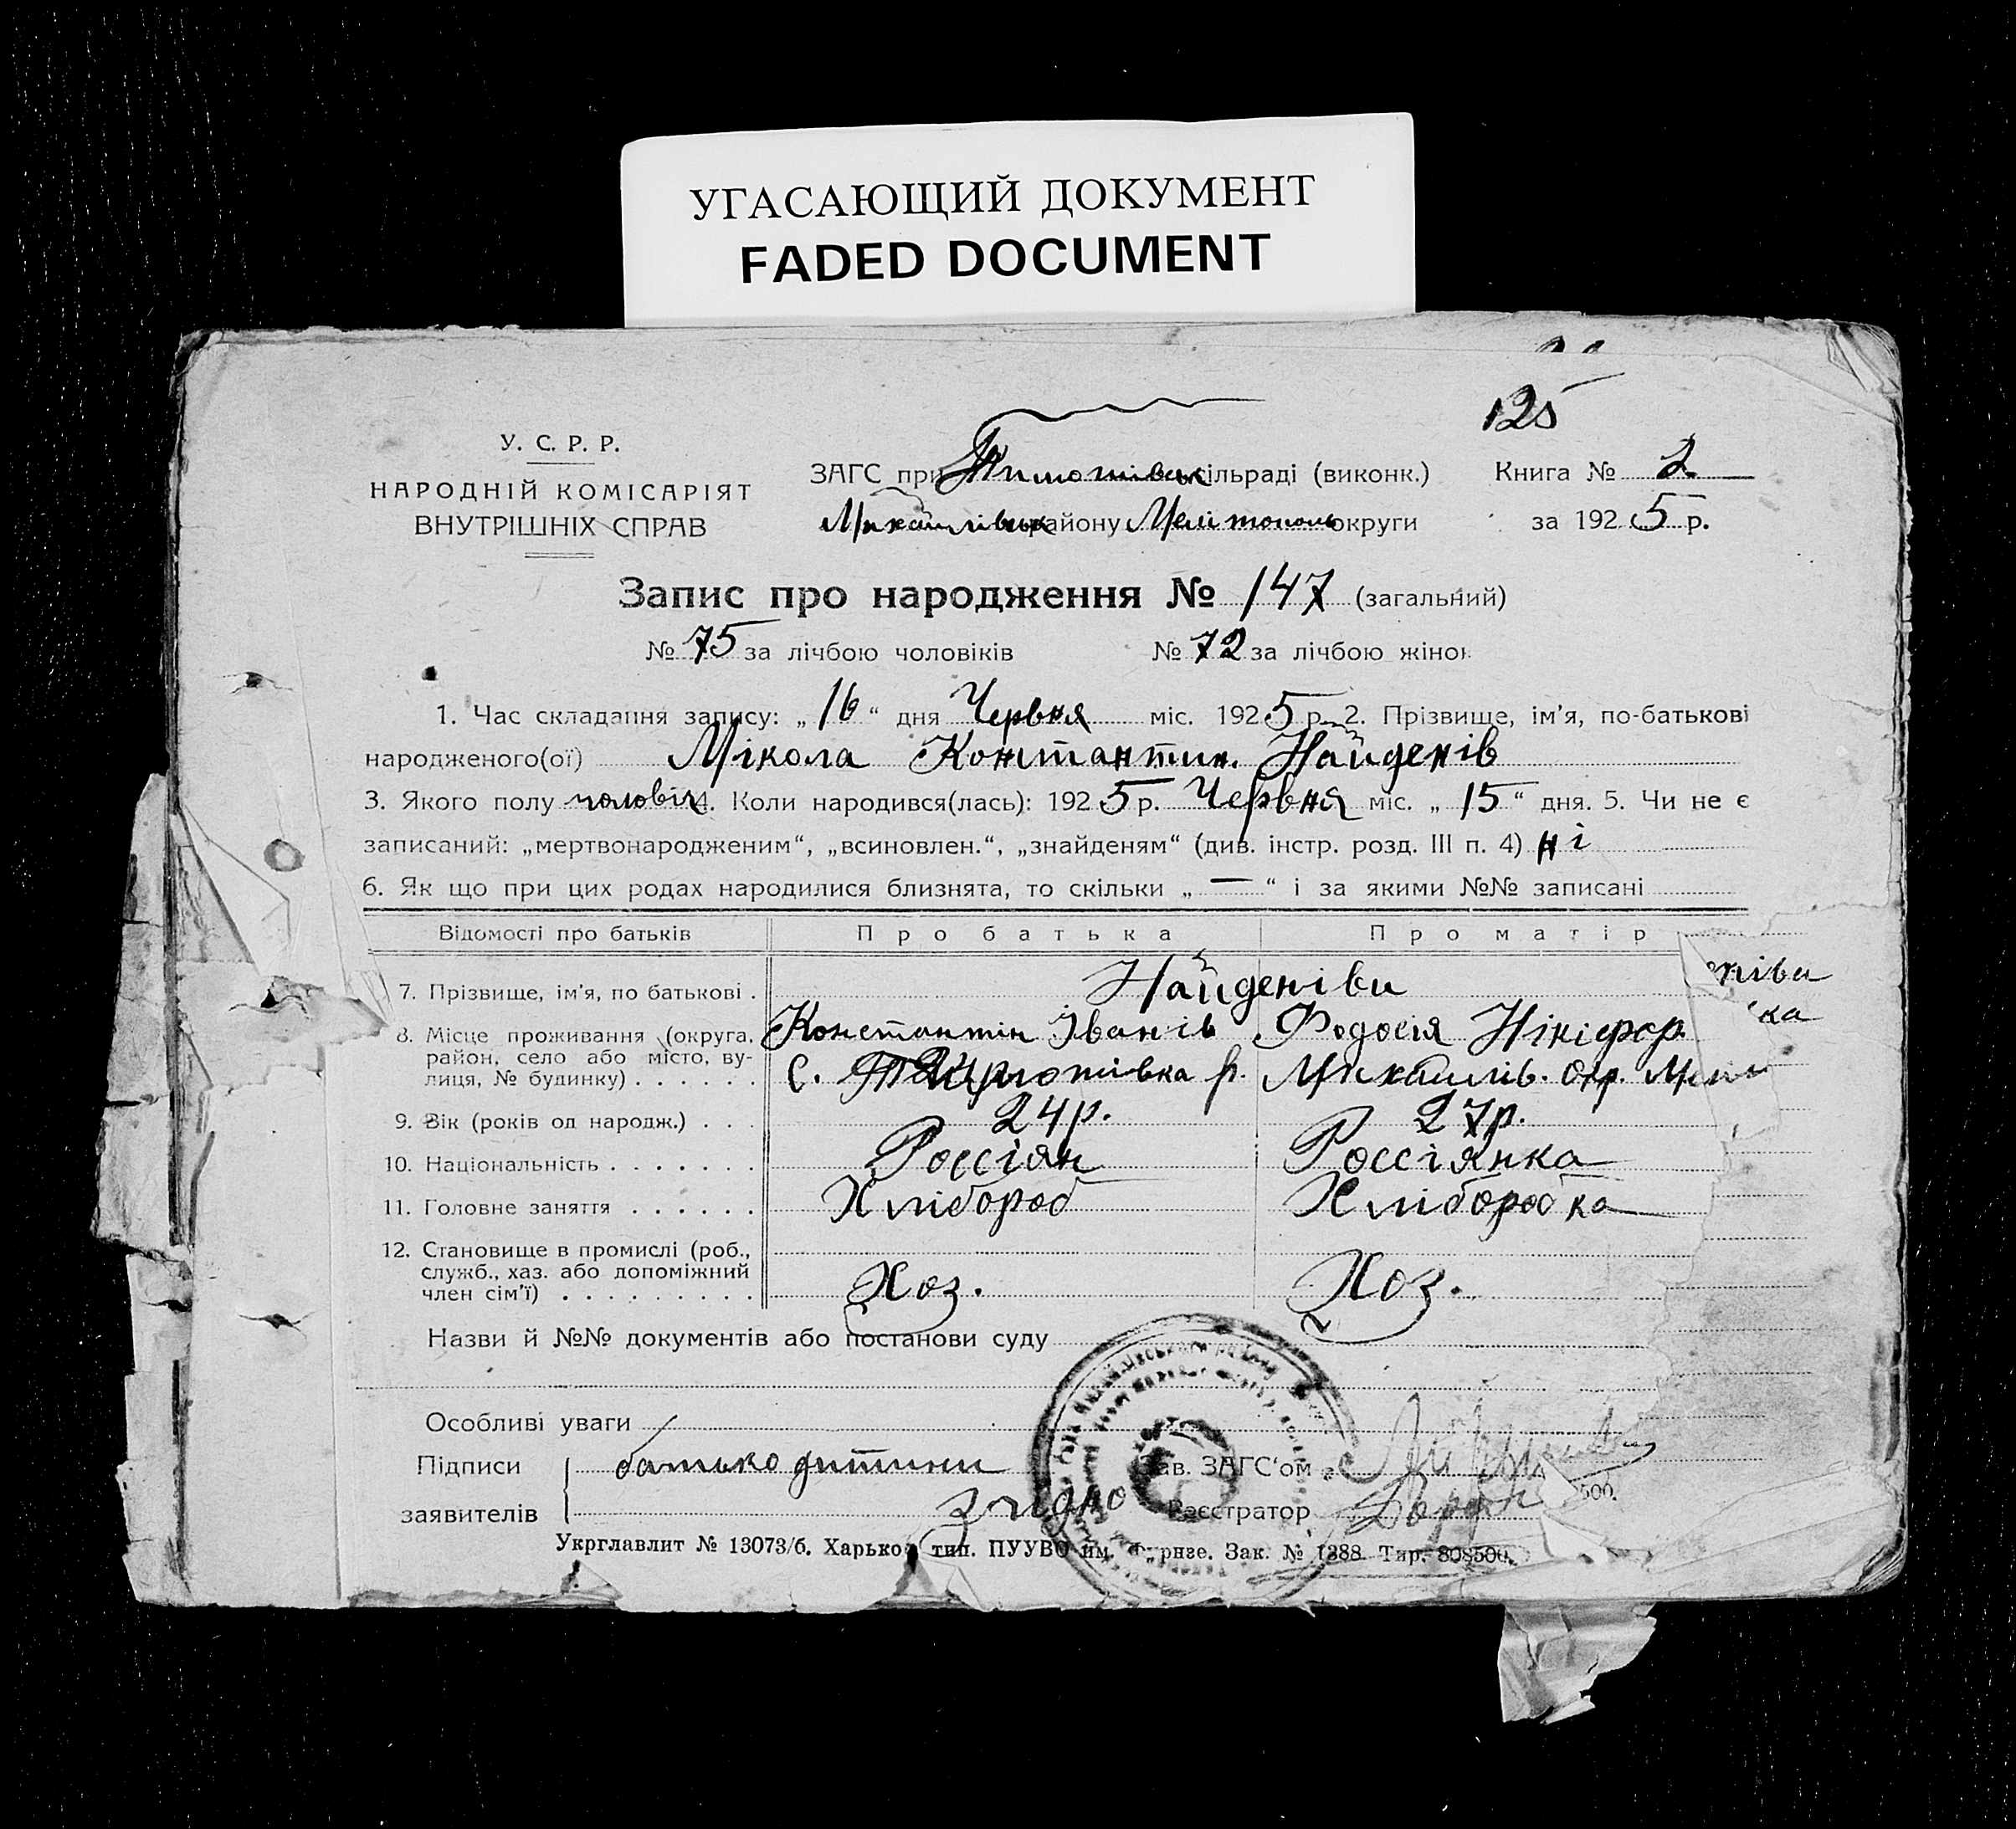 УГАСАЮЩИЙ ДОКУМЕНТ
FADED DOCUMENT
125
У. С. Р. Р.
НАРОДНІЙ КОМІСАРІЯТ
ВНУТРІШНІХ СПРАВ
ЗАГС при Тимотівськ сільраді (виконк.)
Михайлівськ району Мелітополь округи
Книга № 2
за 1925 р.
Запис про народження № 147 (загальний)
№ 75 за лічбою чоловіків № 72 за лічбою жінок
1. Час складання запису: „16“ дня Червня міс. 1925 р. 2. Прізвище, ім’я, по-батькові
народженого(ої) Мікола Константин. Найденів
3. Якого полу чоловіч 4. Коли народився(лась): 1925 р. Червня міс. „15“ дня. 5. Чи не є
записаний: „мертвонародженим“, „всиновлен.“, „знайденям“ (див. інстр. розд. III п. 4) ні
6. Як що при цих родах народилися близнята, то скільки „—“ і за якими №№ записані
Відомості про батьків Про батька Про матір
7. Прізвище, ім’я, по батькові . Найденіви
Константін Іванів Федосія Нікіфор.
8. Місце проживання (округа, район, село або місто, вулиця, № будинку) . . . . . . С. Тимотівка р. Михайлів. окр. Мели
9. Вік (років од народж.) . . . 24 р. 27 р.
10. Національність . . . . . . . Россіян Россіянка
11. Головне заняття . . . . . . Хлібороб Хлібороб ка
12. Становище в промислі (роб., служб., хаз. або допоміжний член сім’ї) . . . . . . . . . Хоз. Хоз.
Назви й №№ документів або постанови суду
Особливі уваги
Підписи заявителів батько дитини
Зав. ЗАГС‘ом
згидно
Реєстратор
500.
Укрглавлит № 13073/б. Харьков, тип. ПУУВО им. Фрунзе. Зак. № 1388 Тир. 808500.